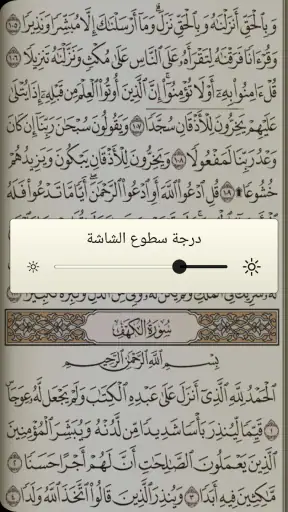 وَبِالْحَقِّ أَنزَلْنَاهُ وَبِالْحَقِّ نَزَلَ وَمَا أَرْسَلْنَاكَ إِلَّا مُبَشِّرًا وَنَذِيرًا ١٠٥
وَقُرْءَانًا فَرَقْنَاهُ لِتَقْرَأَهُ عَلَى النَّاسِ عَلَى مُكْثٍ وَنَزَّلْنَاهُ تَنزِيلًا ١٠٦
قُلْ ءَامِنُوا بِهِ أَوْ لَا تُؤْمِنُوا إِنَّ الَّذِينَ أُوتُوا الْعِلْمَ مِن قَبْلِهِ إِذَا يُتْلَى
عَلَيْهِمْ يَخِرُّونَ لِلْأَذْقَانِ سُجَّدًا ١٠٧ وَيَقُولُونَ سُبْحَنَ رَبِّنَا إِن كَانَ
وَعْدُ رَبِّنَا لَمَفْعُولًا ١٠٨ وَيَخِرُّونَ لِلْأَذْقَانِ يَبْكُونَ وَيَزِيدُهُمْ
خُشُوعًا ۩ ١٠٩ قُلِ ادْعُوا اللَّهَ أَوِ ادْعُوا الرَّحْمَنَ أَيًّا مَّا تَدْعُوا فَلَهُ
درجة سطوع الشاشة
سُورَةُ الْكَهْفِ
بِسْمِ اللَّهِ الرَّحْمَنِ الرَّحِيمِ
الْحَمْدُ لِلَّهِ الَّذِي أَنزَلَ عَلَى عَبْدِهِ الْكِتَبَ وَلَمْ يَجْعَل لَّهُ عِوَجَا ١
قَيِّمًا لِّيُنذِرَ بَأْسًا شَدِيدًا مِّن لَّدُنْهُ وَيُبَشِّرَ الْمُؤْمِنِينَ
الَّذِينَ يَعْمَلُونَ الصَّلِحَتِ أَنَّ لَهُمْ أَجْرًا حَسَنًا ٢
مَّكِثِينَ فِيهِ أَبَدًا ٣ وَيُنذِرَ الَّذِينَ قَالُوا اتَّخَذَ اللَّهُ وَلَدًا ٤